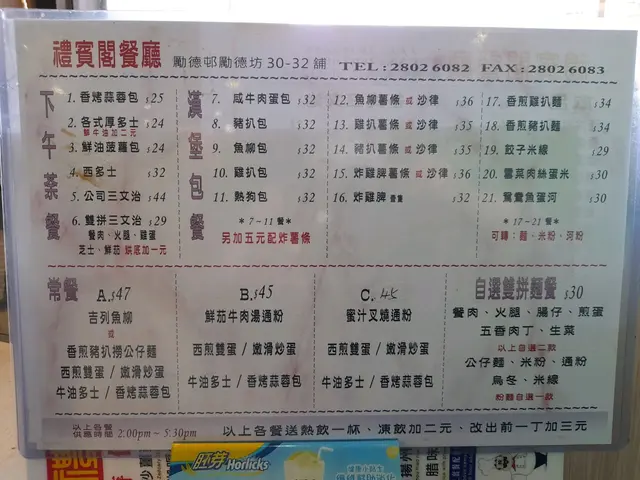 禮賓閣餐廳 勵德邨勵德坊 30-32 舖 TEL:2802 6082 FAX:2802 6083
下午茶餐
1. 香烤蒜蓉包 $25
2. 各式厚多士 $24
鮮牛油加二元
3. 鮮油菠蘿包 $24
4. 西多士 $32
5. 公司三文治 $44
6. 雙拼三文治 $29
餐肉、火腿、雞蛋
芝士、鮮茄 烘底加一元
漢堡包餐
7. 咸牛肉蛋包 $32
8. 豬扒包 $32
9. 魚柳包 $32
10. 雞扒包 $32
11. 熱狗包 $32
* 7~11 餐*
另加五元配炸薯條
12. 魚柳薯條 或 沙律 $36
13. 雞扒薯條 或 沙律 $35
14. 豬扒薯條 或 沙律 $35
15. 炸雞脾薯條 或 沙律 $36
16. 炸雞脾 $32
17. 香煎雞扒麵 $34
18. 香煎豬扒麵 $34
19. 餃子米線 $29
20. 雲菜肉絲蛋米 $30
21. 鴛鴦魚蛋河 $30
* 17~21 餐*
可轉:麵、米粉、河粉
常餐
A. $47
吉列魚柳
或
香煎豬扒撈公仔麵
西煎雙蛋 / 嫩滑炒蛋
牛油多士 / 香烤蒜蓉包
B. $45
鮮茄牛肉湯通粉
西煎雙蛋 / 嫩滑炒蛋
牛油多士 / 香烤蒜蓉包
C. 45
蜜汁叉燒通粉
西煎雙蛋 / 嫩滑炒蛋
牛油多士 / 香烤蒜蓉包
自選雙拼麵餐 $30
餐肉、火腿、腸仔、煎蛋
五香肉丁、生菜
以上自選二款
公仔麵、米粉、通粉
烏冬、米線
粉麵自選一款
以上各餐
供應時間 2:00pm ~ 5:30pm
以上各餐送熱飲一杯、凍飲加二元、改出前一丁加三元
胚芽 Horlicks